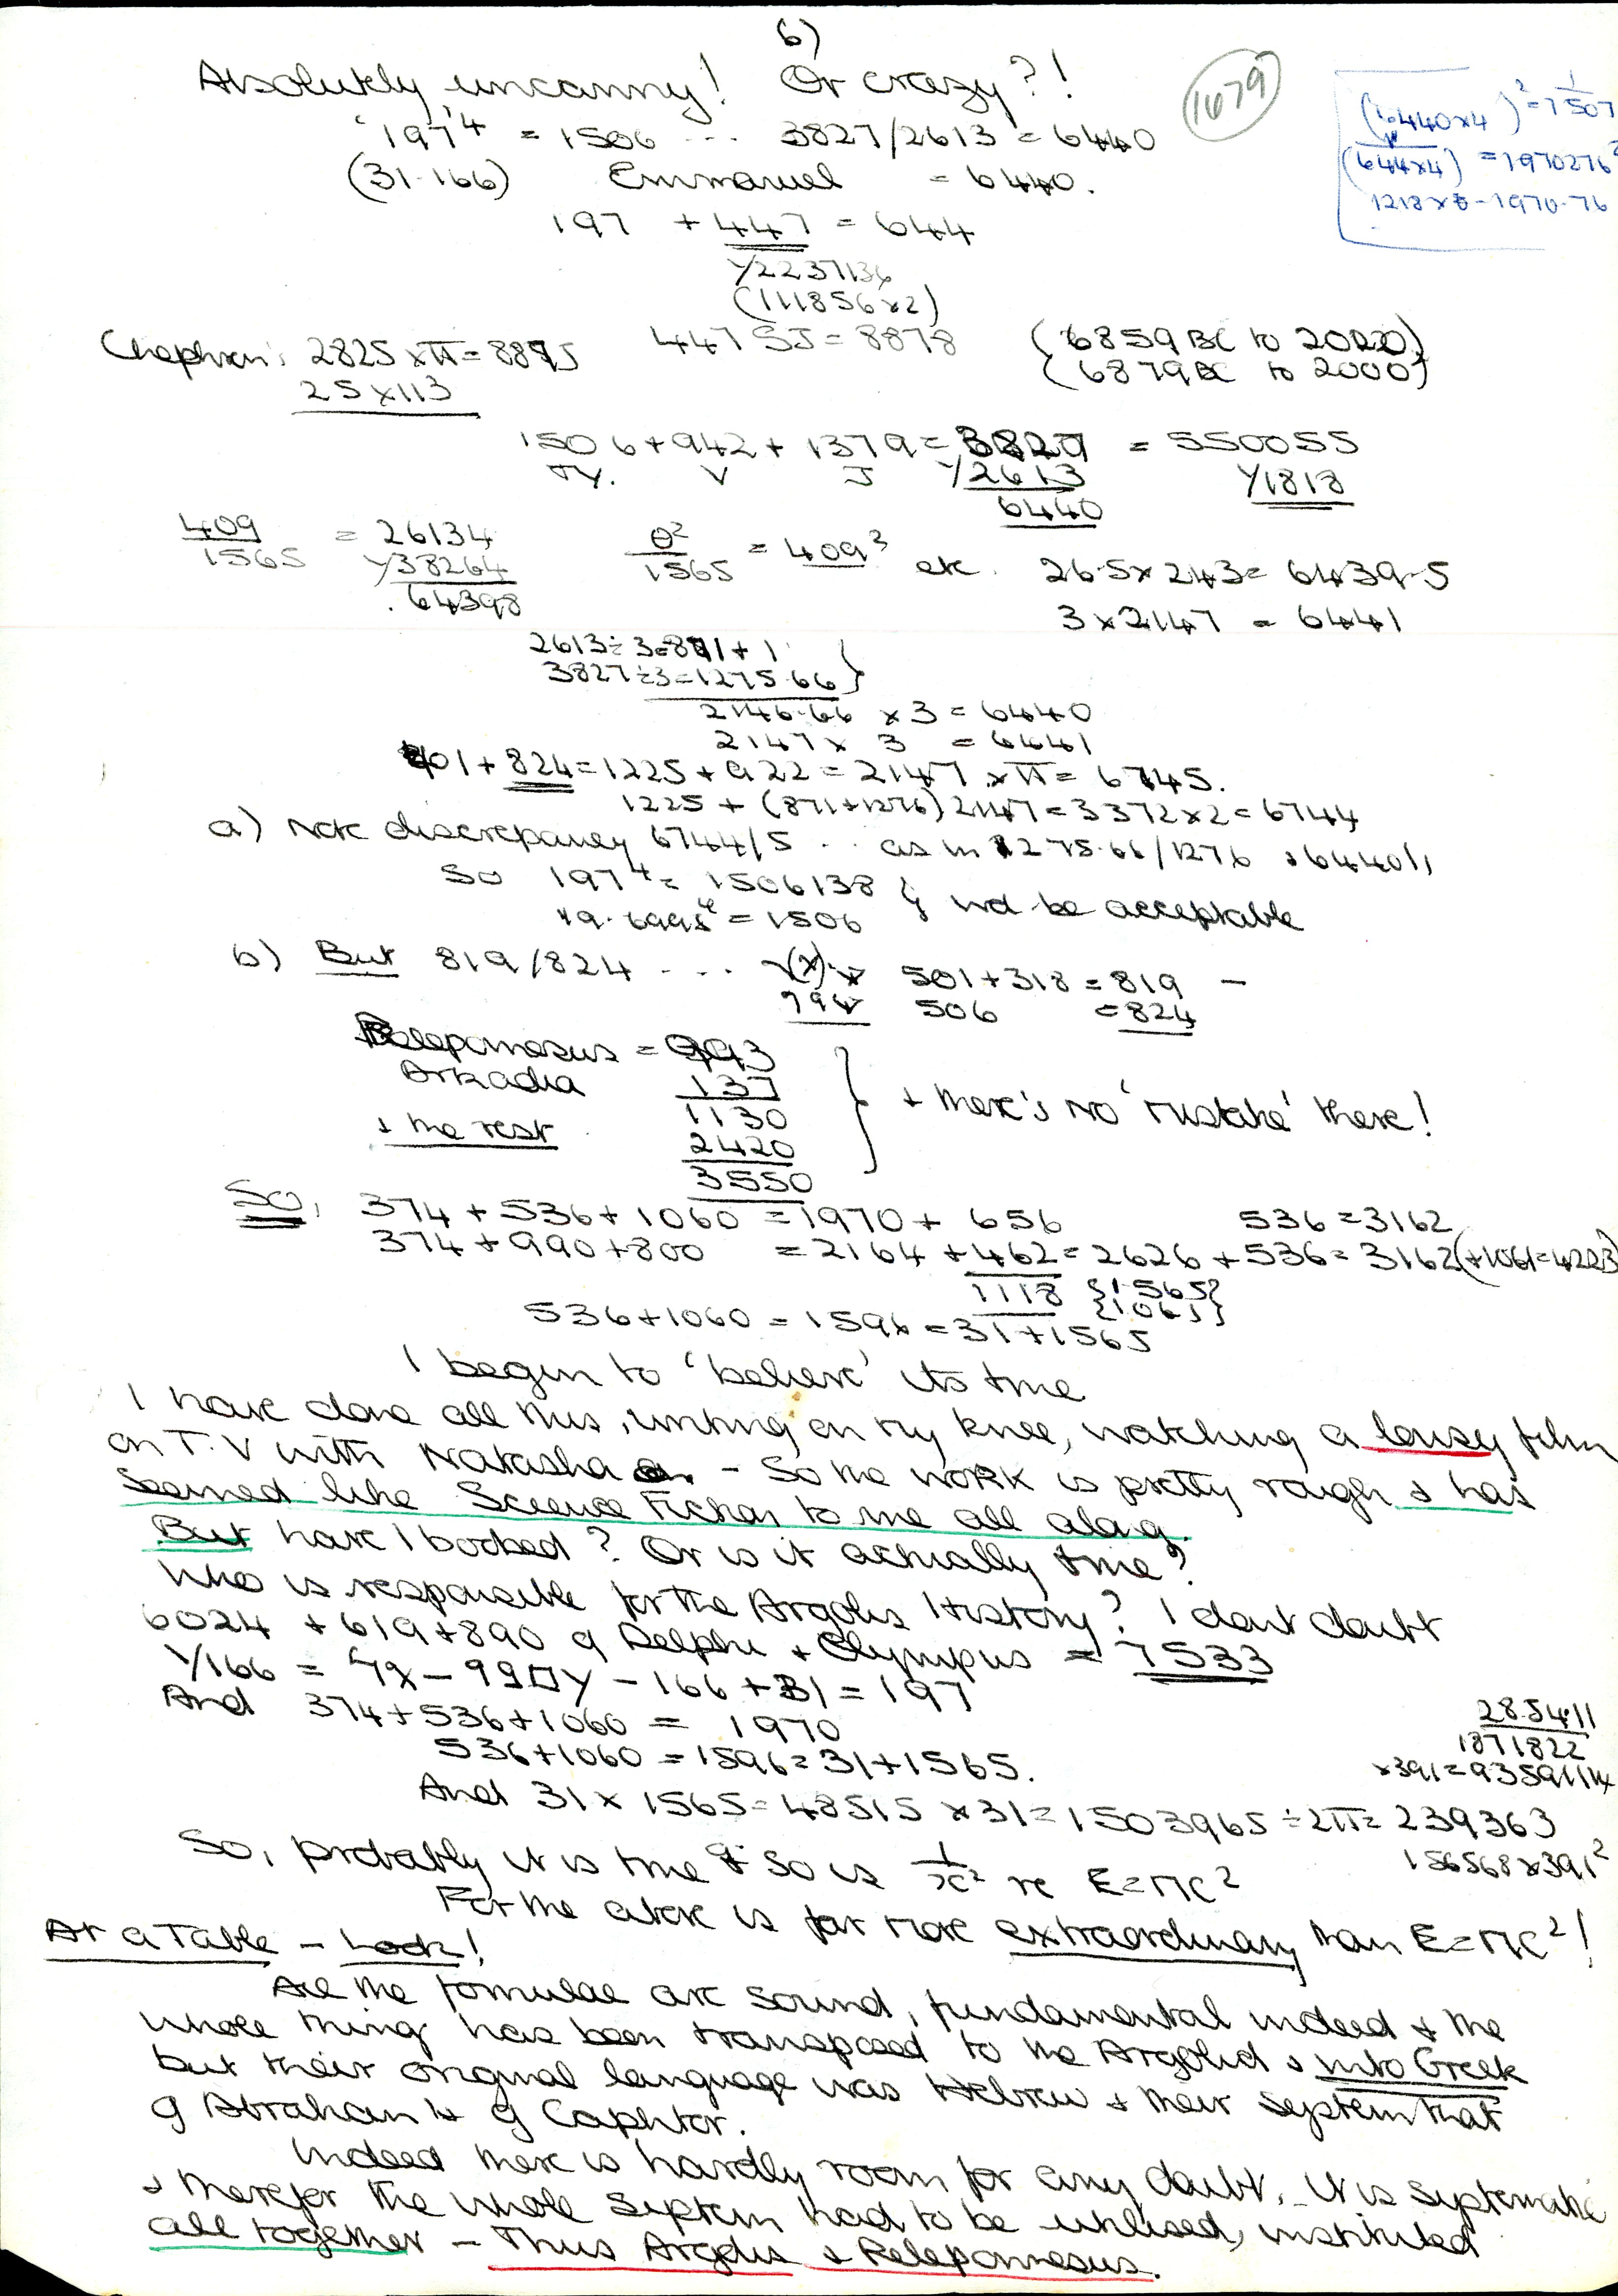 6)
Absolutely uncanny! Or crazy?!
1679
'197⁴ = 1506 ... 3827/2613 = 6440
(31.166) Emmanuel = 6440.
197 + 447 = 644
Y/2237136
(111856x2)
(6440x4)² = 1/1507
(644x4) = 1970276²
1218x8 - 1970.76
Chephren: 2825 x π = 8875
25x113
447 SJ = 8878
(6859 BC to 2020)
(6879 BC to 2000)
1506 + 942 + 1379 = 3827 = 550055
TY. V J Y/2613 Y/1818
6440
409/1565 = 26134
Y/38264
.64398
θ²/1565 = 409³ etc. 26.5x243 = 6439.5
3x2147 = 6441
2613÷3=871+1 }
3827÷3=1275.66 }
2146.66 x 3 = 6440
2147 x 3 = 6441
401 + 824 = 1225 + 922 = 2147 x π = 6745.
1225 + (871+1276) 2147 = 3372x2 = 6744
a) Note discrepancy 6744/5 .. as in 1275.66/1276 & 6440/1
So 197⁴ = 1506138 }
19.6995⁴ = 1506 } wd be acceptable
b) But 819/824 ... 501+318 = 819 -
794 506 = 824
Peleponnesus = 993
Arkadia 137
1130
& the rest 2420
3550
} & there's no 'mistake' there!
So, 374 + 536 + 1060 = 1970 + 656 536 = 3162
374 + 990 + 800 = 2164 + 462 = 2626 + 536 = 3162 (+1061=4223)
1118 {1565}
{1061}
536+1060 = 1596 = 31+1565
I begin to 'believe' its true
I have done all this, writing on my knee, watching a lousy film
on T.V with Natasha - So the work is pretty rough & has
seemed like Science Fiction to me all along.
But have I boobed? Or is it actually true?
Who is responsible for the Argolis History? I dont doubt
6024 + 619 + 890 of Delphi & Olympus = 7533
Y/166 = - 166 + 31 = 197
And 374 + 536 + 1060 = 1970
536 + 1060 = 1596 = 31 + 1565.
28.5411
1871822
x391 = 93591114
And 31 x 1565 = 48515 x 31 = 1503965 ÷ 2π = 239363
156568x391²
So, probably it is true & so is 1/x² re E=MC²
For the above is far more extraordinary than E=MC²!
At a Table - Look!
All the formulae are sound, fundamental indeed & the
whole thing has been transposed to the Argolid & into Greek
but their original language was Hebrew & their system that
of Abraham & of Caphtor.
Indeed there is hardly room for any doubt. It is systematic
& therefor the whole system had to be utilised, instituted
all together - Thus Argolis & Peleponnesus.